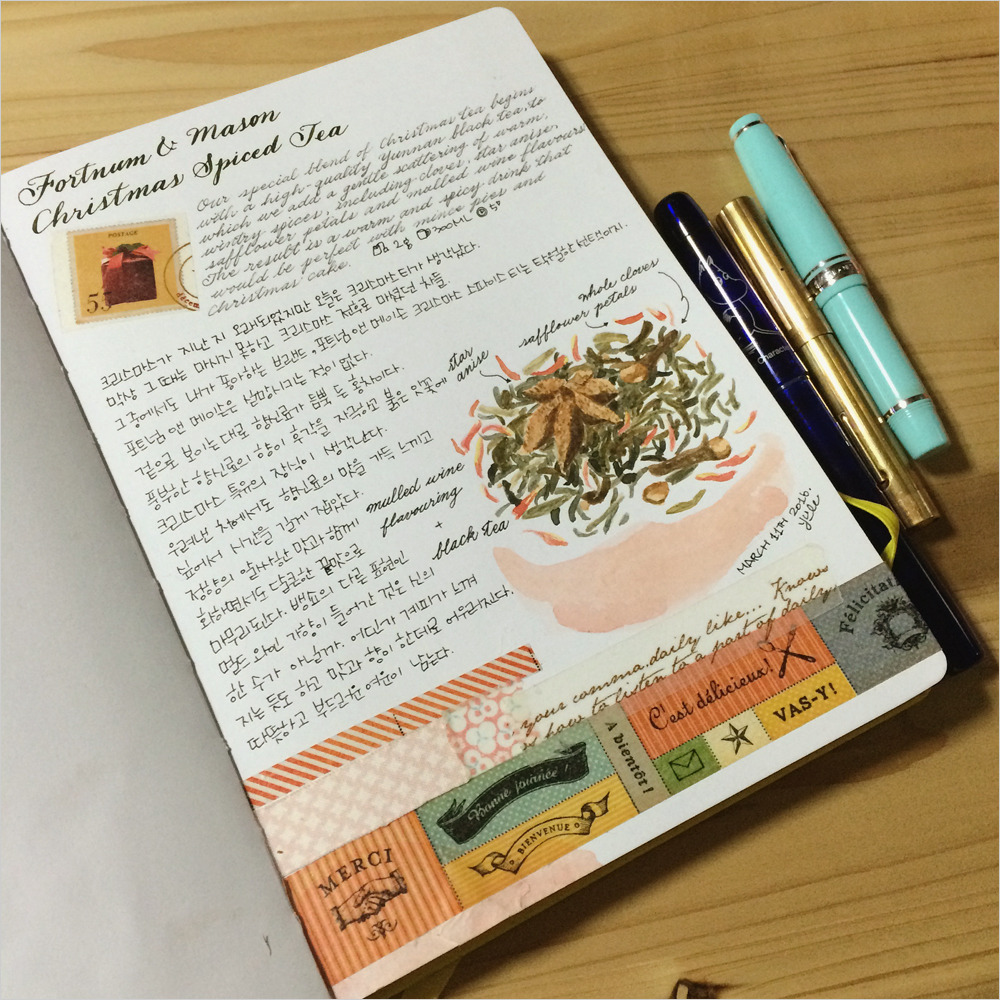 Fortnum & Mason
Christmas Spiced Tea
Our special blend of Christmas tea begins
with a high-quality Yunnan black tea, to
which we add a gentle scattering of warm,
wintry spices, including cloves, star anise,
safflower petals and mulled wine flavours
The result is a warm and spicy drink that
would be perfect with mince pies and
Christmas cake.
POSTAGE
55
2g 300ML 5'
크리스마스가 지난 지 오래되었지만 오늘은 크리스마스 티가 생각났다.
막상 그 때는 마시지 못하고 크리스마스 전후로 마셨던 차들.
그 중에서도 내가 좋아하는 브랜드, 포트넘 앤 메이슨 크리스마스 스파이스 티는 탁월한 선택이지.
포트넘 앤 메이슨은 실망시키는 적이 없다.
겉으로 보이는대로 향신료가 듬뿍 든 홍차이다.
풍부한 향신료의 향이 후각을 자극하고 붉은 잇꽃에
크리스마스 특유의 장식이 생각난다.
우려낸 차에서도 향신료의 맛을 가득 느끼고
싶어서 시간을 길게 잡았다.
정향의 알싸한 맛과 함께
화하면서도 달콤한 끝맛으로
마무리된다. 뱅쇼의 다른 표현인
멀드 와인 가향이 들어간 것은 신의
한 수가 아닐까. 어딘가 계피가 느껴
지는 듯도 하고 맛과 향이 한데로 어우러진다.
따뜻하고 부드러운 여운이 남는다.
whole cloves
safflower petals
star
anise
mulled wine
flavouring
+
black tea
MARCH 11TH 2016.
yule
Character
your comma, daily like... Knows
how to listen to a part of daily
Félicitat
C'est délicieux!
VAS-Y!
A bientôt!
Bonne journée!
BIENVENUE
MERCI